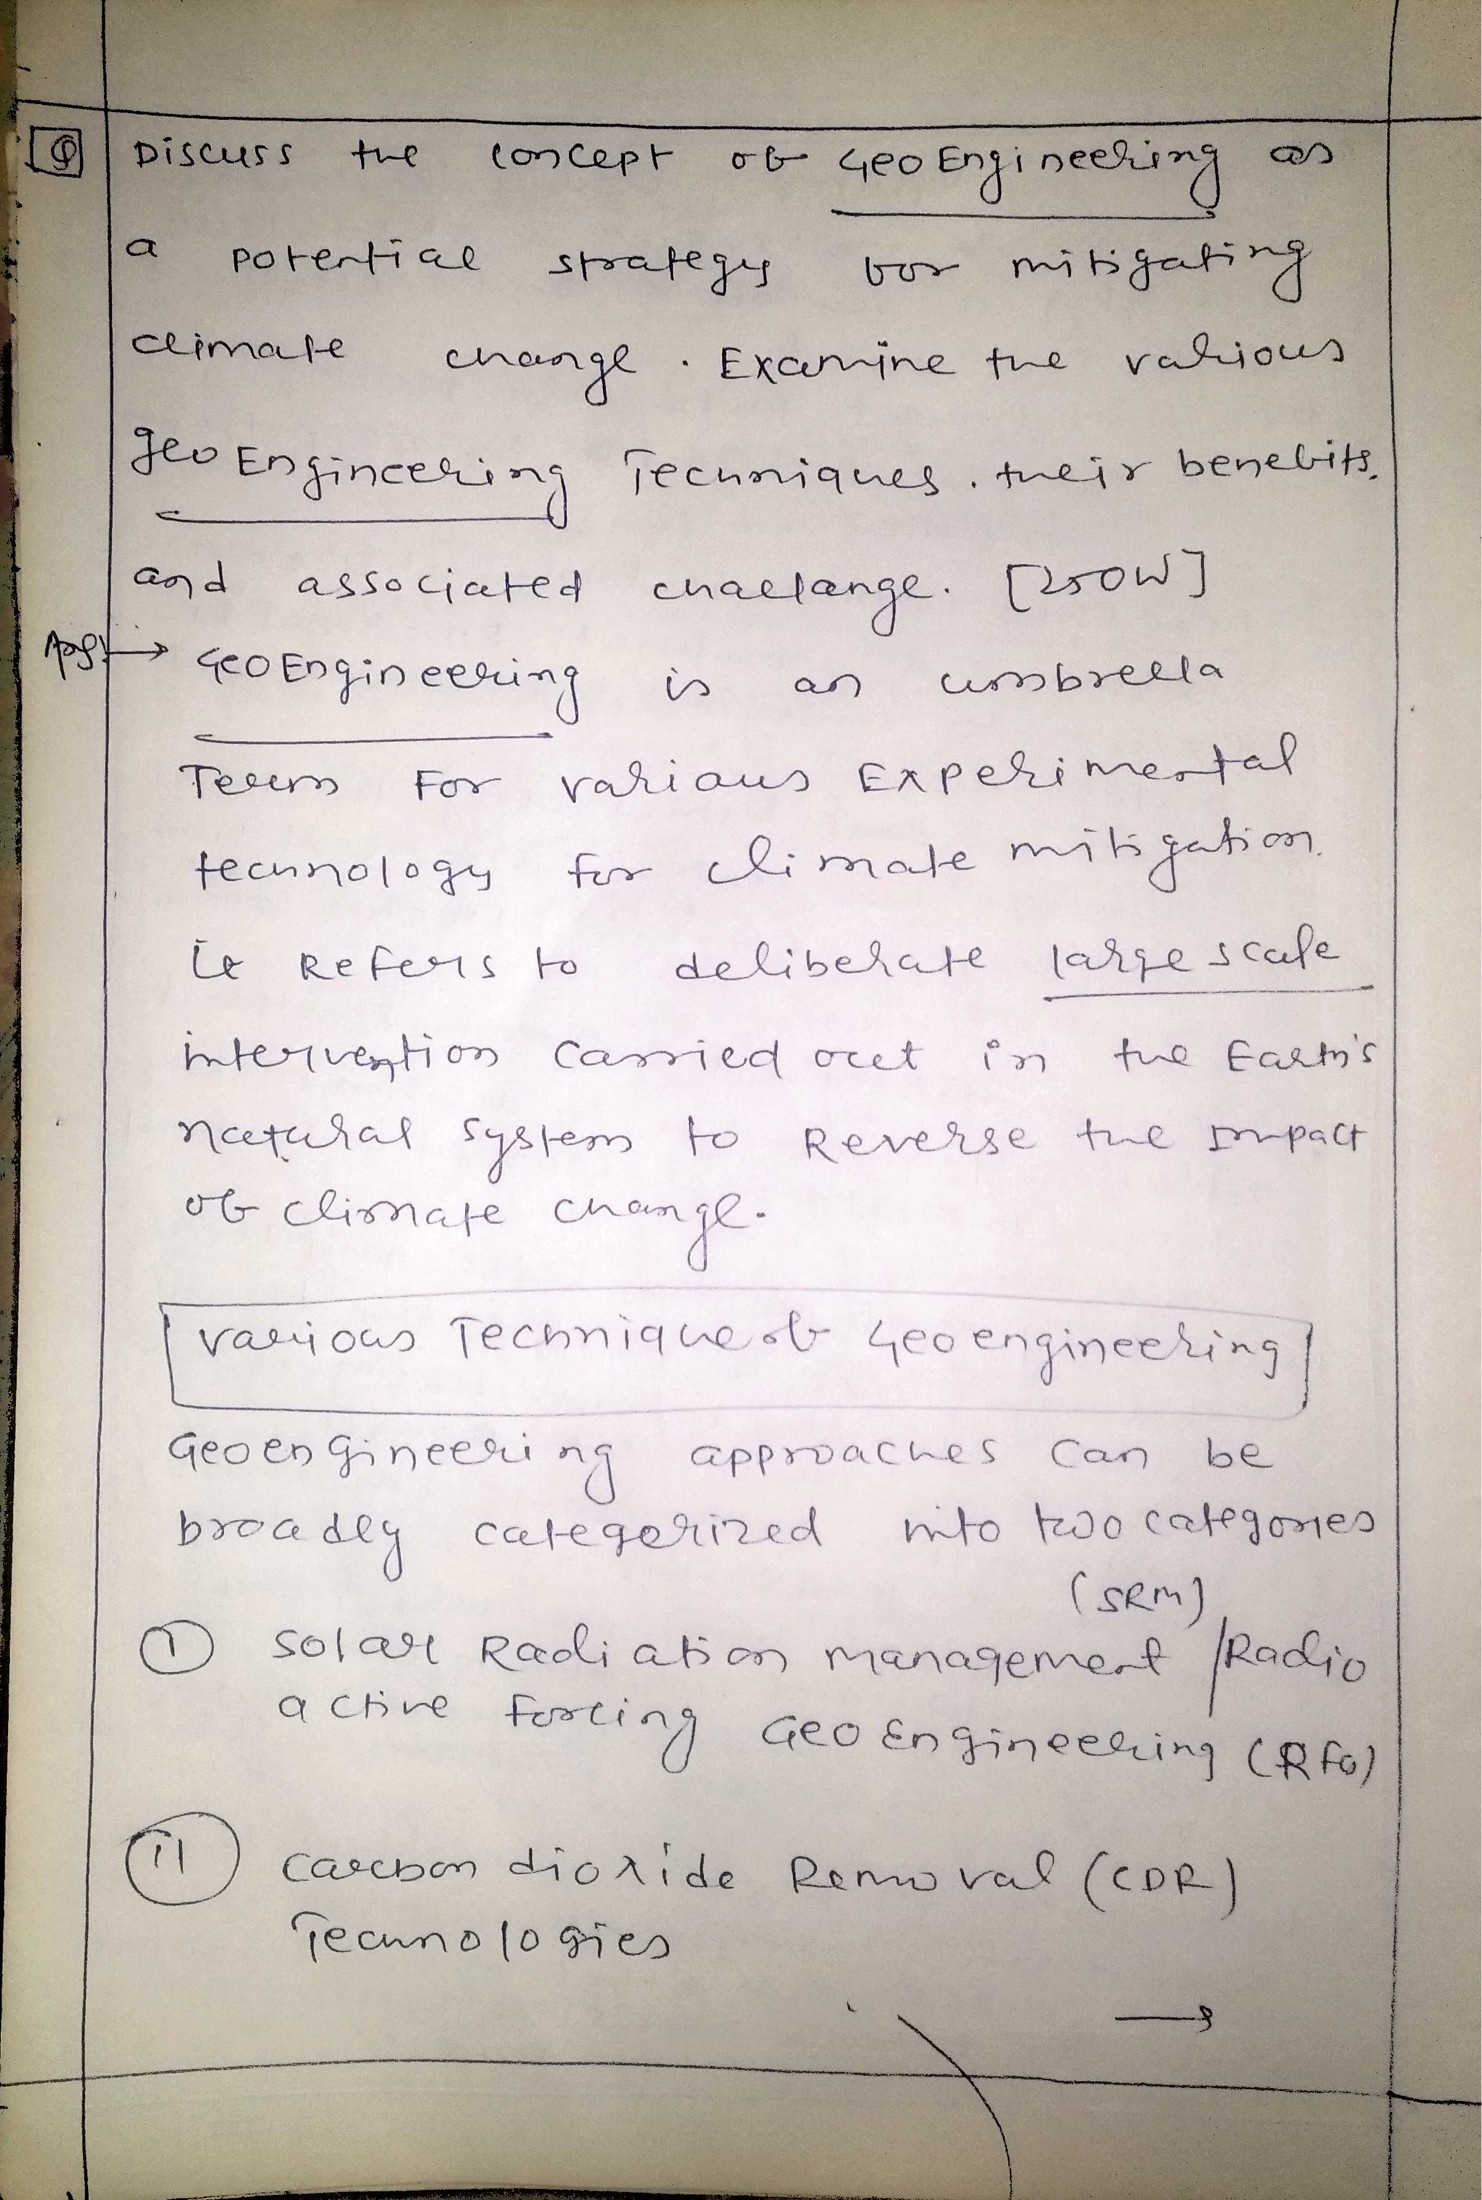 Q Discuss the concept of GeoEngineering as
a potential strategy for mitigating
climate change. Examine the various
geoEngineering Techniques. their benefits.
and associated challange. [250W]
Ans: → GeoEngineering is an umbrella
Term For various Experimental
technology for climate mitigation.
it Refers to deliberate large scale
intervention carried out in the Earth's
natural system to Reverse the Impact
of climate change.
Various Technique of Geoengineering
Geoengineering approaches can be
broadly categorized into two categories
(SRM)
i Solar Radiation management / Radio
active Forcing GeoEngineering (RFG)
ii Carbon dioxide Removal (CDR)
Technologies
→